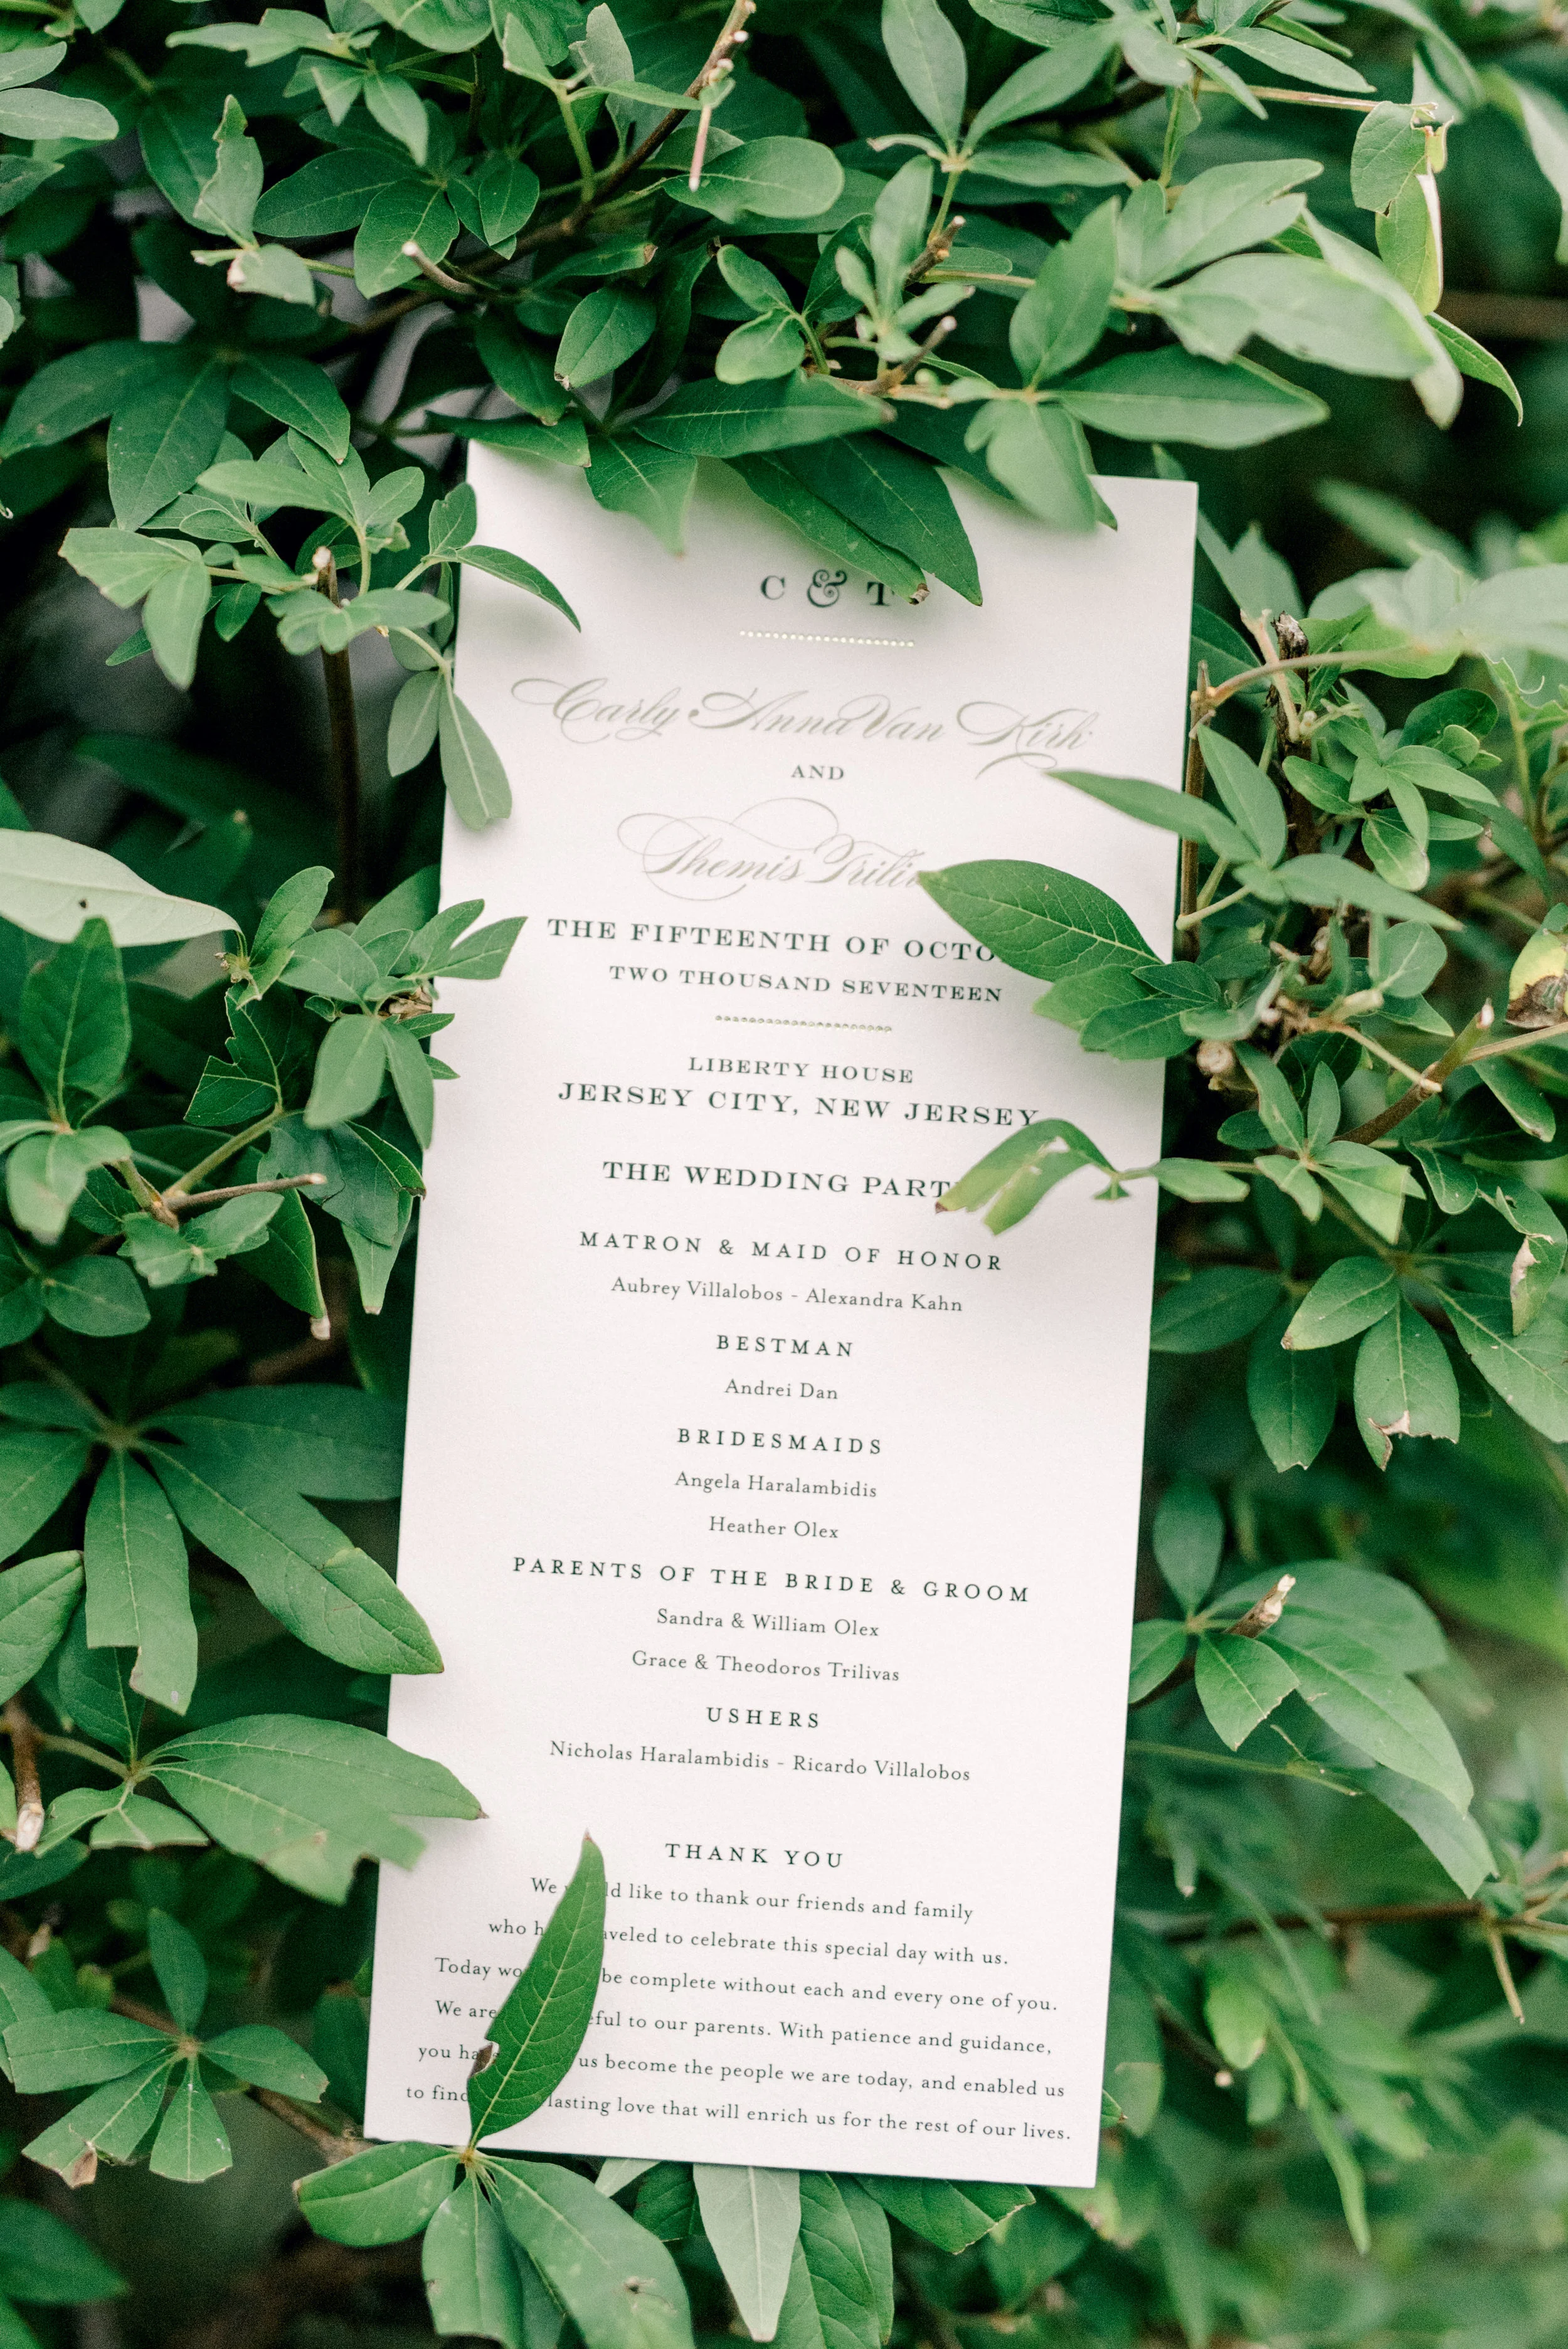 C & T
Carly Anna Van Kirk
AND
Themis Trili
THE FIFTEENTH OF OCTO
TWO THOUSAND SEVENTEEN
LIBERTY HOUSE
JERSEY CITY, NEW JERSEY
THE WEDDING PARTY
MATRON & MAID OF HONOR
Aubrey Villalobos - Alexandra Kahn
BESTMAN
Andrei Dan
BRIDESMAIDS
Angela Haralambidis
Heather Olex
PARENTS OF THE BRIDE & GROOM
Sandra & William Olex
Grace & Theodoros Trilivas
USHERS
Nicholas Haralambidis - Ricardo Villalobos
THANK YOU
We would like to thank our friends and family
who have traveled to celebrate this special day with us.
Today wo be complete without each and every one of you.
We are eful to our parents. With patience and guidance,
you ha us become the people we are today, and enabled us
to find lasting love that will enrich us for the rest of our lives.